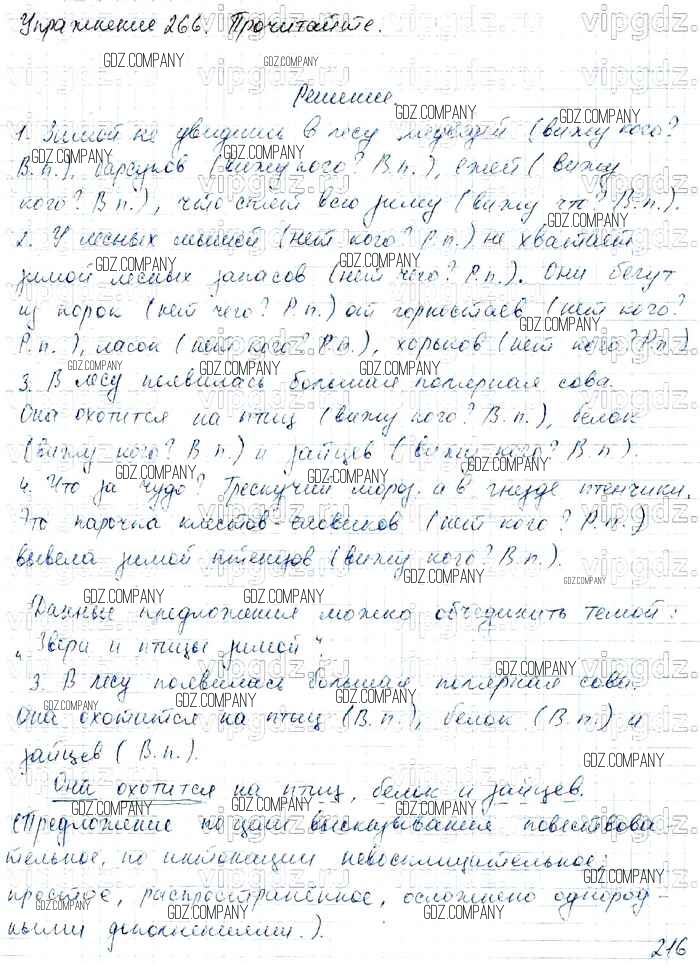 Упражнение 266. Прочитайте.
Решение.
1. Зимой не увидишь в лесу медведей (вижу кого?
В.п.), барсуков (вижу кого? В.п.), ежей (вижу
кого? В.п.), что спят всю зиму (вижу что? В.п.).
2. У лесных мышей (нет кого? Р.п.) не хватает
зимой лесных запасов (нет чего? Р.п.). Они бегут
из норок (нет чего? Р.п.) от горностаев (нет кого?
Р.п.), ласок (нет кого? Р.п.), хорьков (нет кого? Р.п.)
3. В лесу появилась большая полярная сова.
Она охотится на птиц (вижу кого? В.п.), белок
(вижу кого? В.п.) и зайцев (вижу кого? В.п.).
4. Что за чудо? Трескучий мороз, а в гнезде птенчики.
Это парочка клестов-еловиков (нет кого? Р.п.)
вывела зимой птенцов (вижу кого? В.п.).
Данные предложения можно объединить темой:
„Звери и птицы зимой".
3. В лесу появилась большая полярная сова.
Она охотится на птиц (В.п.), белок (В.п.) и
зайцев (В.п.).
Она охотится на птиц, белок и зайцев.
(Предложение по цели высказывания повествова-
тельное, по интонации невосклицательное,
простое, распространённое, осложнено однород-
ными дополнениями.).
216